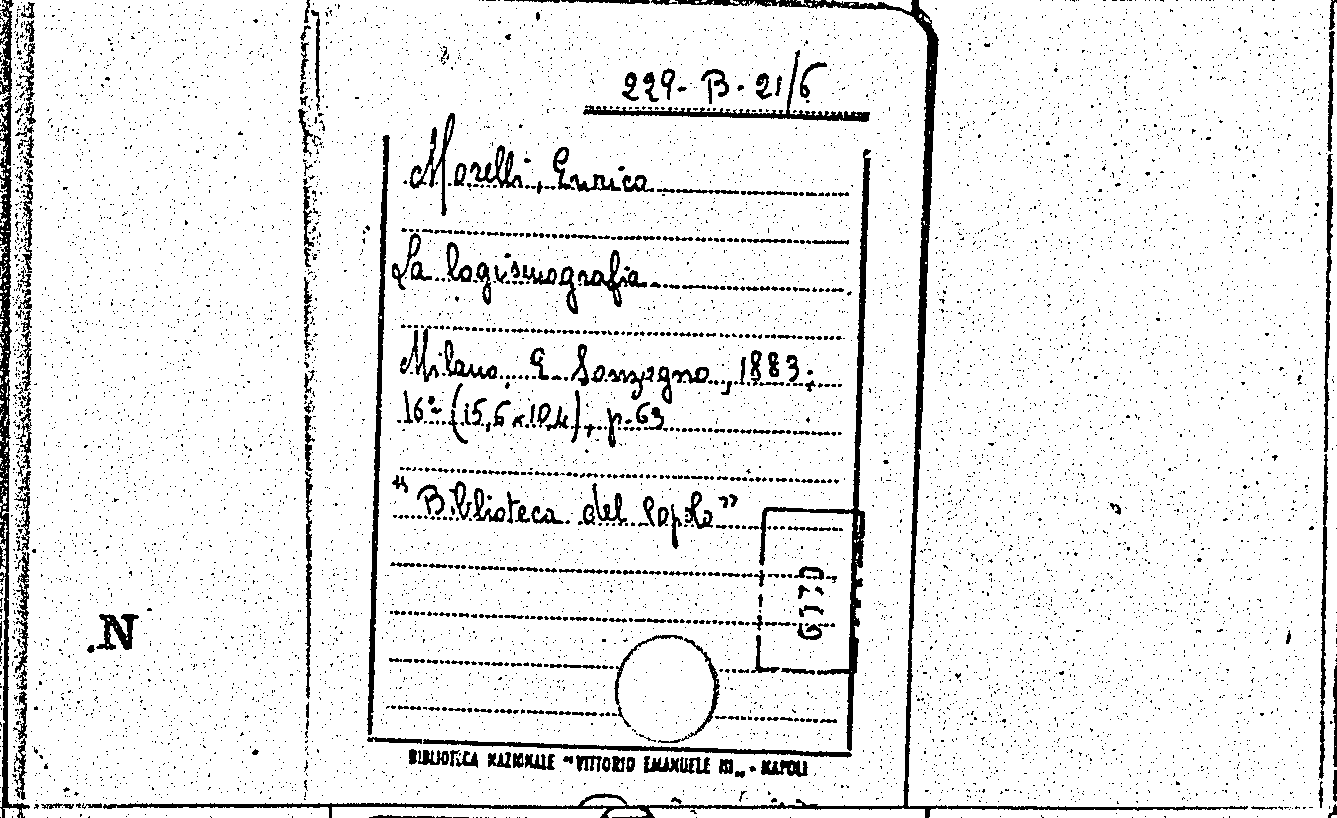 229-B-21/6
Morelli, Enrico
La logismografia
Milano, E. Sonzogno, 1883;
16° (15,6 x 10,4), p. 63
"Biblioteca del Popolo"
.N
BIBLIOTECA NAZIONALE "VITTORIO EMANUELE III„ - NAPOLI